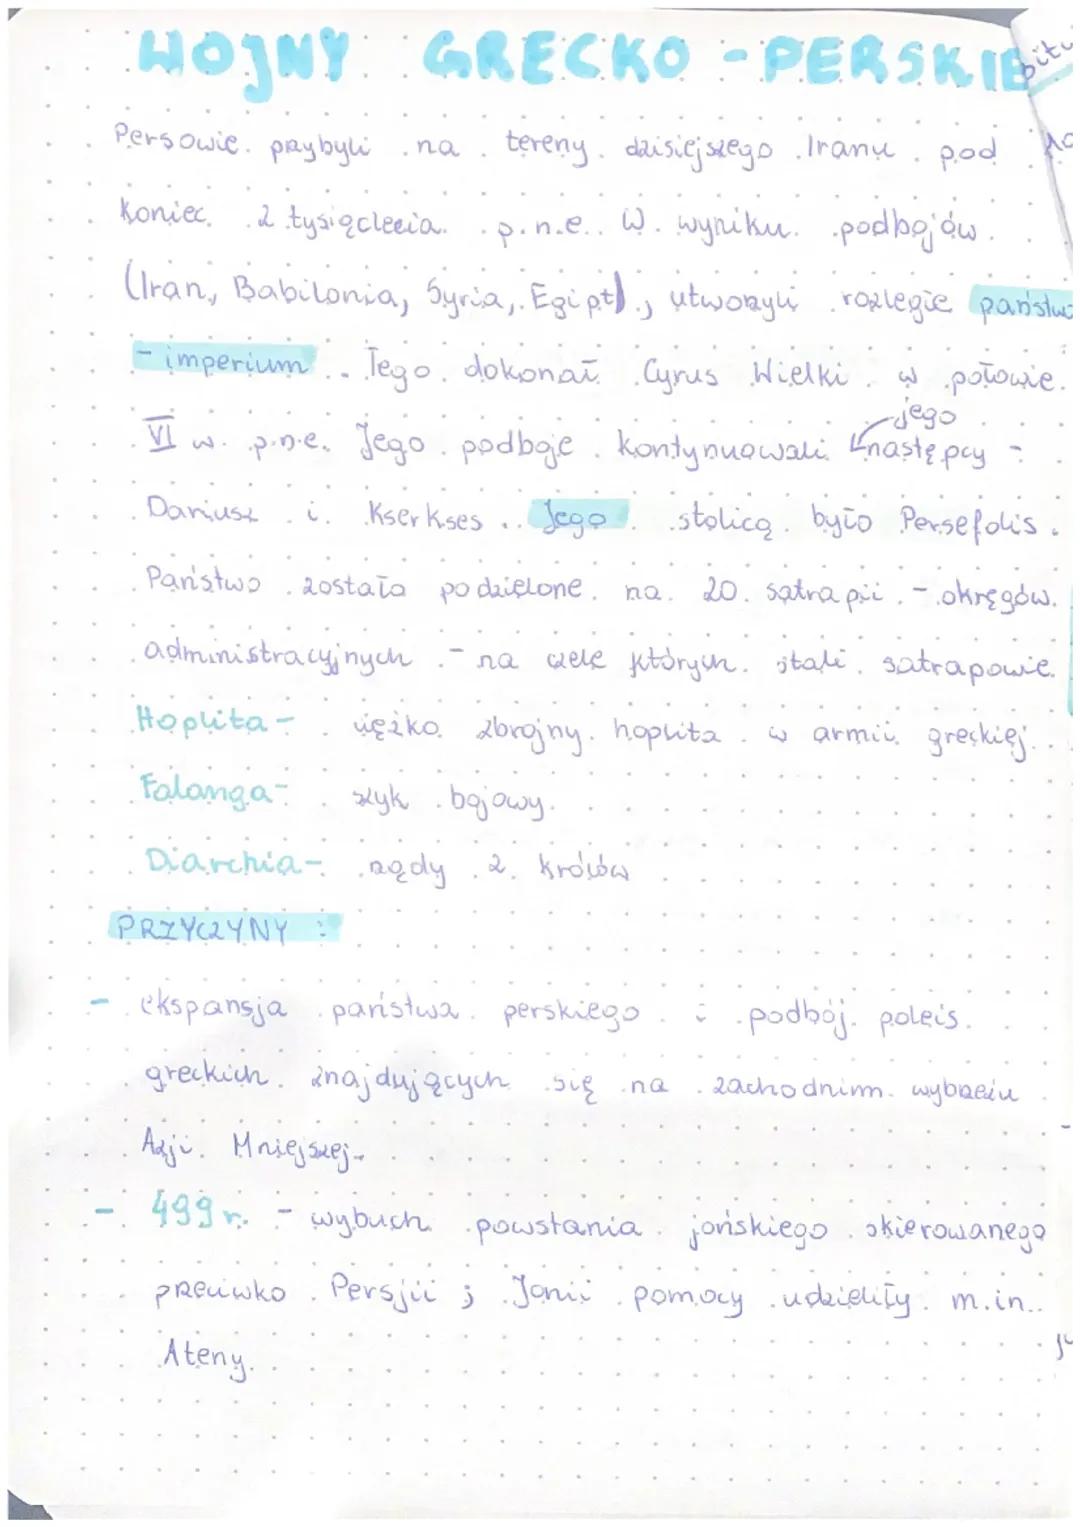 WOJNY GRECKO - PERSKIE
Persowie przybyli na tereny dzisiejszego Iranu pod
koniec 2 tysiąclecia p.n.e. W wyniku podbojów
(Iran, Babilonia, Syria, Egipt), utworzyli rozległe państwo
- imperium. Tego dokonał Cyrus Wielki w połowie
jego
VI w. p.n.e. Jego podboje kontynuowali następcy -
Dariusz i Kserkses. Jego stolicą było Persefolis.
Państwo została podzielone na 20 satrapii - okręgów
administracyjnych - na czele których stali satrapowie.
Hoplita - ciężko zbrojny hoplita w armii greckiej.
Falanga - szyk bojowy.
Diarchia - rządy 2 królów
PRZYCZYNY :
- ekspansja państwa perskiego i podbój poleis
greckich znajdujących się na zachodnim wybrzeżu
Azji Mniejszej.
- 499 r. - wybuch powstania jońskiego skierowanego
przeciwko Persjii ; Jonii pomocy udzieliły m.in.
Ateny.